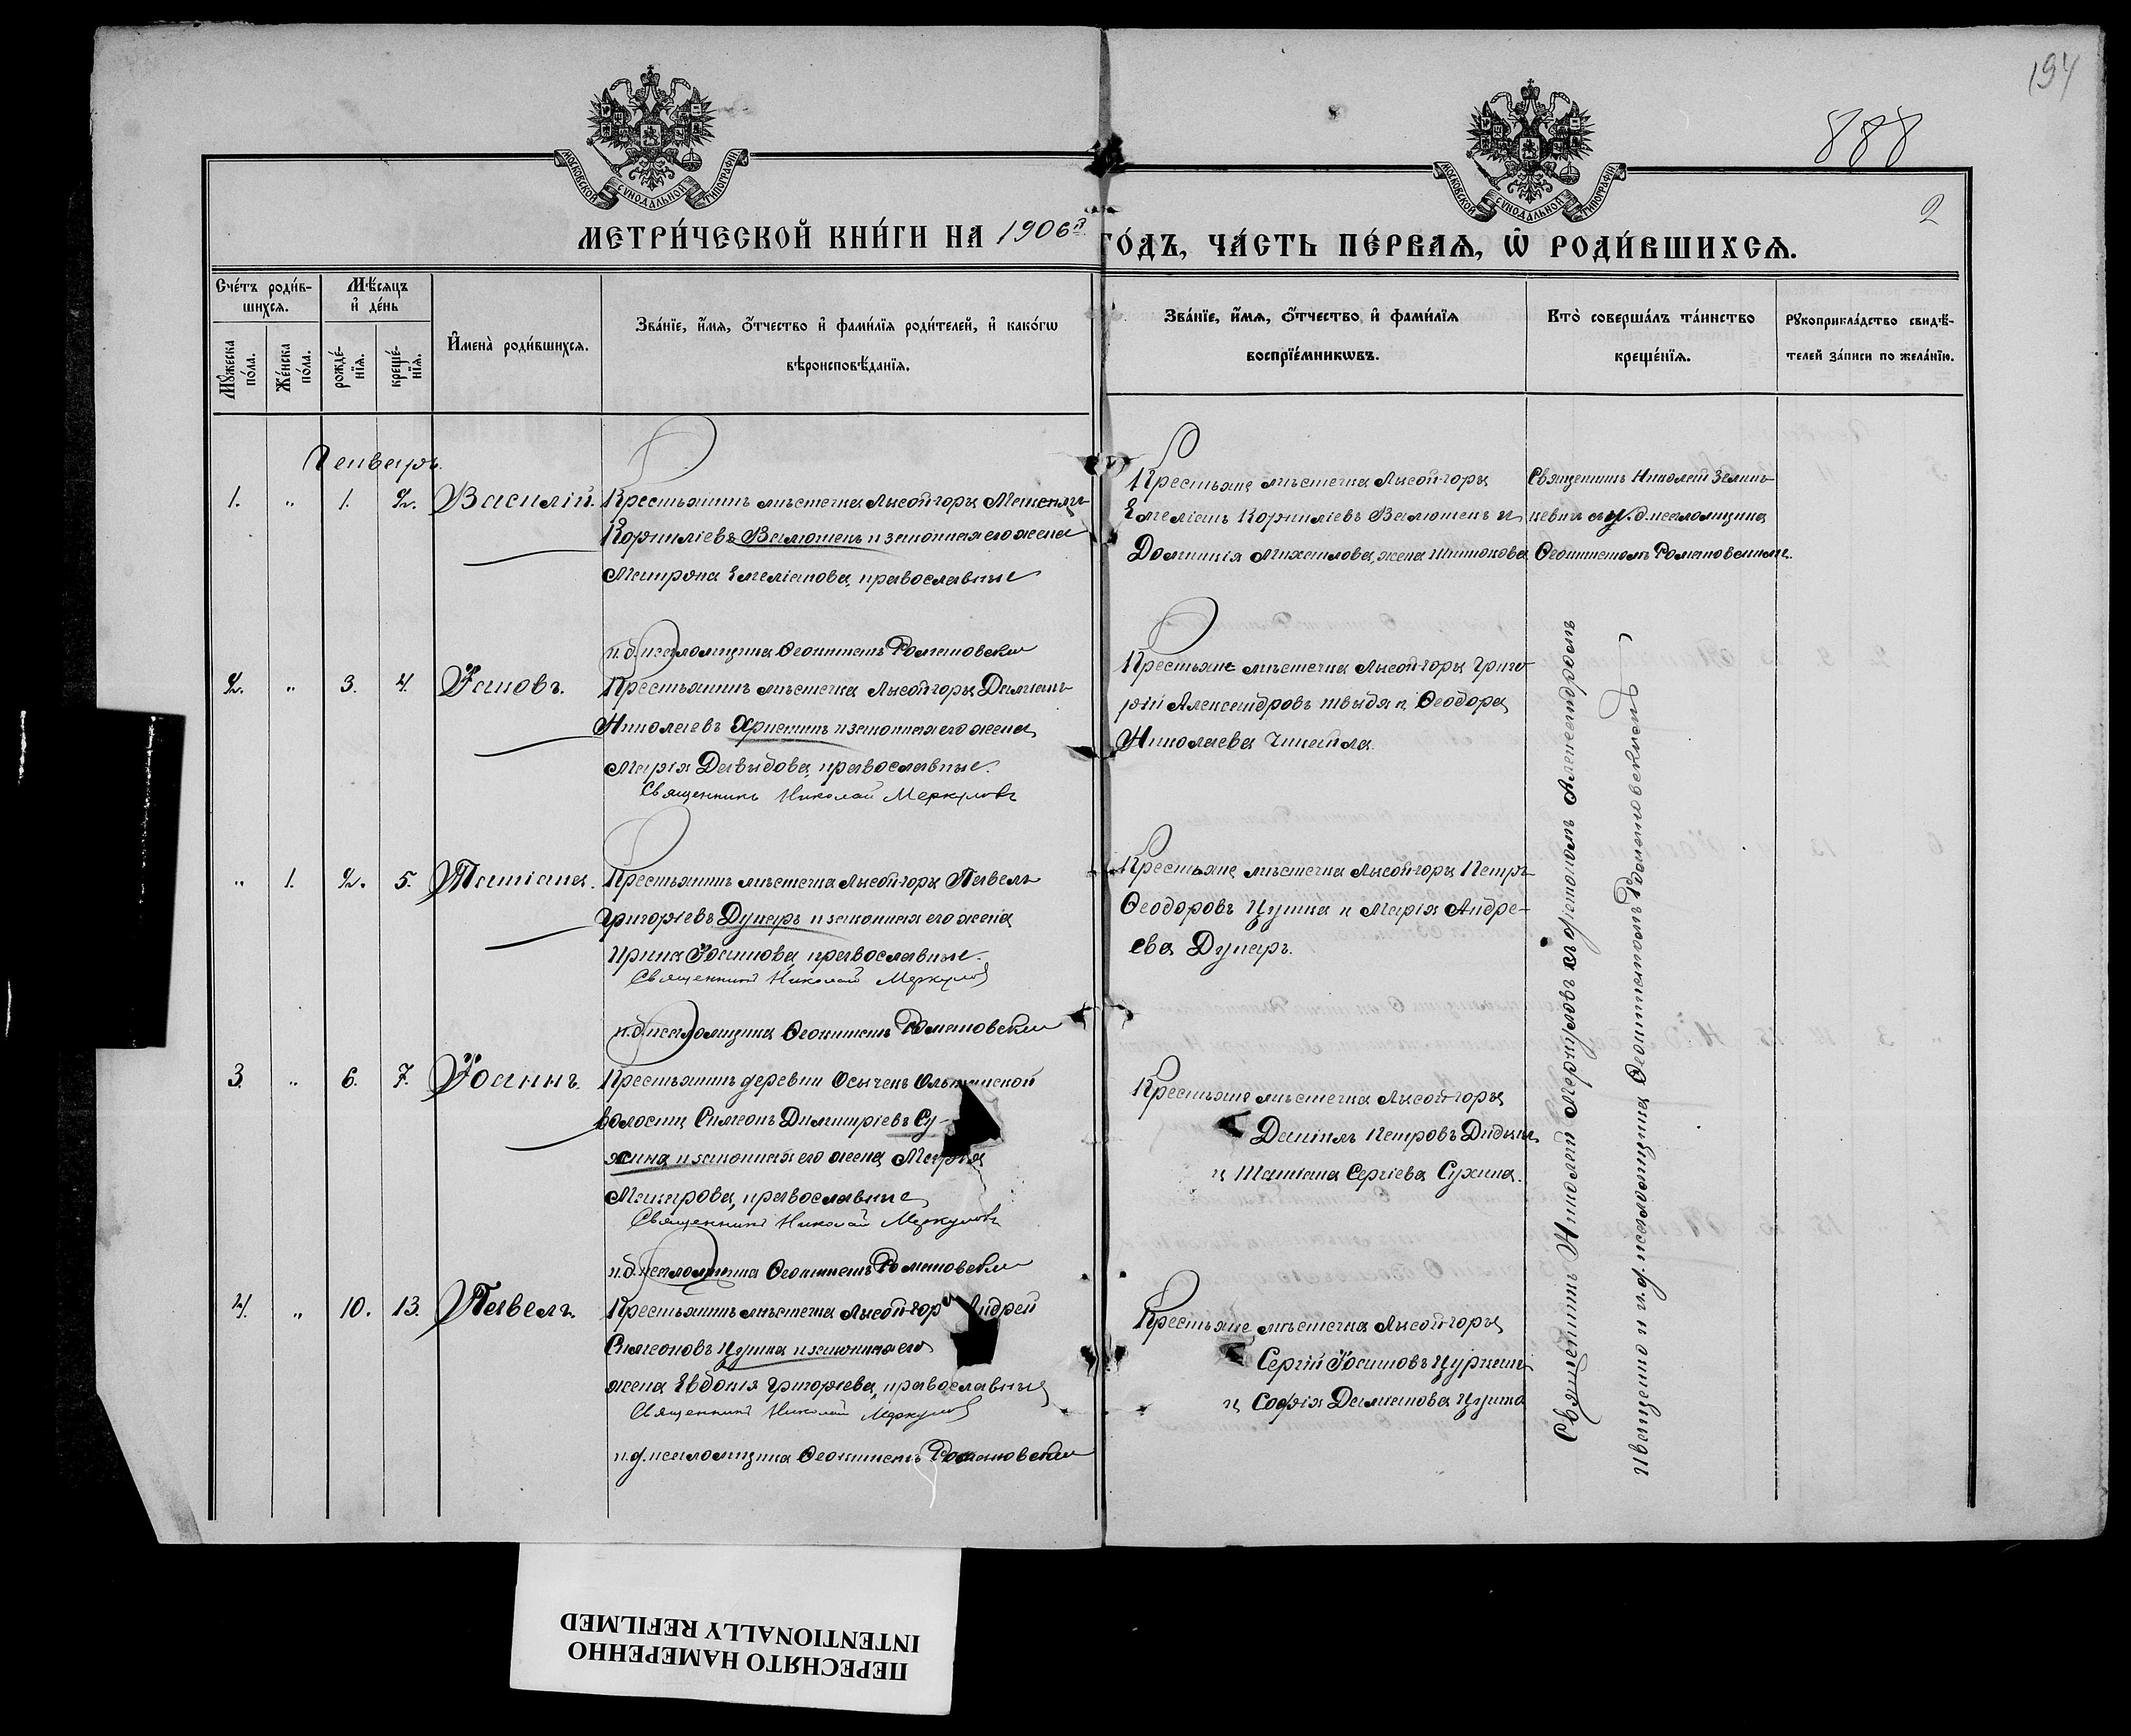 194
888
2
МОСКОВСКОЙ СѴНОДАЛЬНОЙ ТИПОГРАФІИ
МОСКОВСКОЙ СѴНОДАЛЬНОЙ ТИПОГРАФІИ
МЕТРИ́ЧЕСКОЙ КНИ́ГИ НА 1906й ГО́ДЪ, ЧА́СТЬ ПЕ́РВАѦ, Ѡ҆ РОДИ́ВШИХСѦ.
Сче́тъ роди́в-
шихсѧ.
Мꙋ́жеска по́ла.
Же́нска по́ла.
Мѣ́сѧцъ
и҆ де́нь
рожде́-нїѧ.
креще́-нїѧ.
И҆мена̀ роди́вшихсѧ.
Зва́нїе, и҆́мѧ, ѻ҆́тчество и҆ фами́лїѧ роди́телей, и҆ како́гѡ
вѣроисповѣ́данїѧ.
Зва́нїе, и҆́мѧ, ѻ҆́тчество и҆ фами́лїѧ
воспрїе́мникѡвъ.
Кто̀ соверша́лъ та́инство
креще́нїѧ.
Рꙋкоприкла́дство свидѣ́-
телей за́писи по жела́нїю.
Генварь.
1. " 1. 2. Василій.
Крестьянинъ мѣстечка Лысой-горы
Корниліевъ Валюженъ и законная его жена
Матрона Емеліанова, православные
Крестьяне мѣстечка Лысой-горы
Емеліанъ Корниліевъ Валюженъ и
Домникія Михаилова, жена
Священникъ Николай Зелин-
кевичъ съ и. д. псаломщика
Ѳеоктистомъ Романовскимъ.
и. д. псаломщика Ѳеоктистъ Романовскій
2. " 3. 4. Іаковъ.
Крестьянинъ мѣстечка Лысой-горы Даміанъ
Николаевъ и законная его жена
Марія Давыдова, православные.
Священникъ Николай Меркуловъ
Крестьяне мѣстечка Лысой-горы Григо-
рій Александровъ и Ѳеодора
Николаева
" 1. 2. 5. Татіана.
Крестьянинъ мѣстечка Лысой-горы Павелъ
Григоріевъ Дункаръ и законная его жена
Ирина Іоаннова, православные.
Священникъ Николай Меркуловъ
Крестьяне мѣстечка Лысой-горы Петръ
Ѳеодоровъ Цушка и Марія Андре-
ева Дункаръ.
и. д. псаломщика Ѳеоктистъ Романовскій
3. " 6. 7. Іоаннъ.
Крестьянинъ деревни
волости Симеонъ Димитріевъ Су-
жина и законная его жена Марѳа
православные
Священникъ Николай Меркуловъ
Крестьяне мѣстечка Лысой-горы
Даніилъ Петровъ
и Татіана Сергіева
и. д. псаломщика Ѳеоктистъ Романовскій
4. " 10. 13. Павелъ.
Крестьянинъ мѣстечка Лысой-горы Андрей
Симеоновъ Цушка и законная его
жена Евдокія Григоріева, православные
Священникъ Николай Меркуловъ
Крестьяне мѣстечка Лысой-горы
Сергій
и Софія Даміанова Цушка
и. д. псаломщика Ѳеоктистъ Романовскій
Священникъ Николай Меркуловъ съ діакономъ Александромъ
Иващенко и и. д. псаломщика Ѳеоктистомъ Романовскимъ
ПЕРЕСНЯТО НАМЕРЕННО
INTENTIONALLY REFILMED